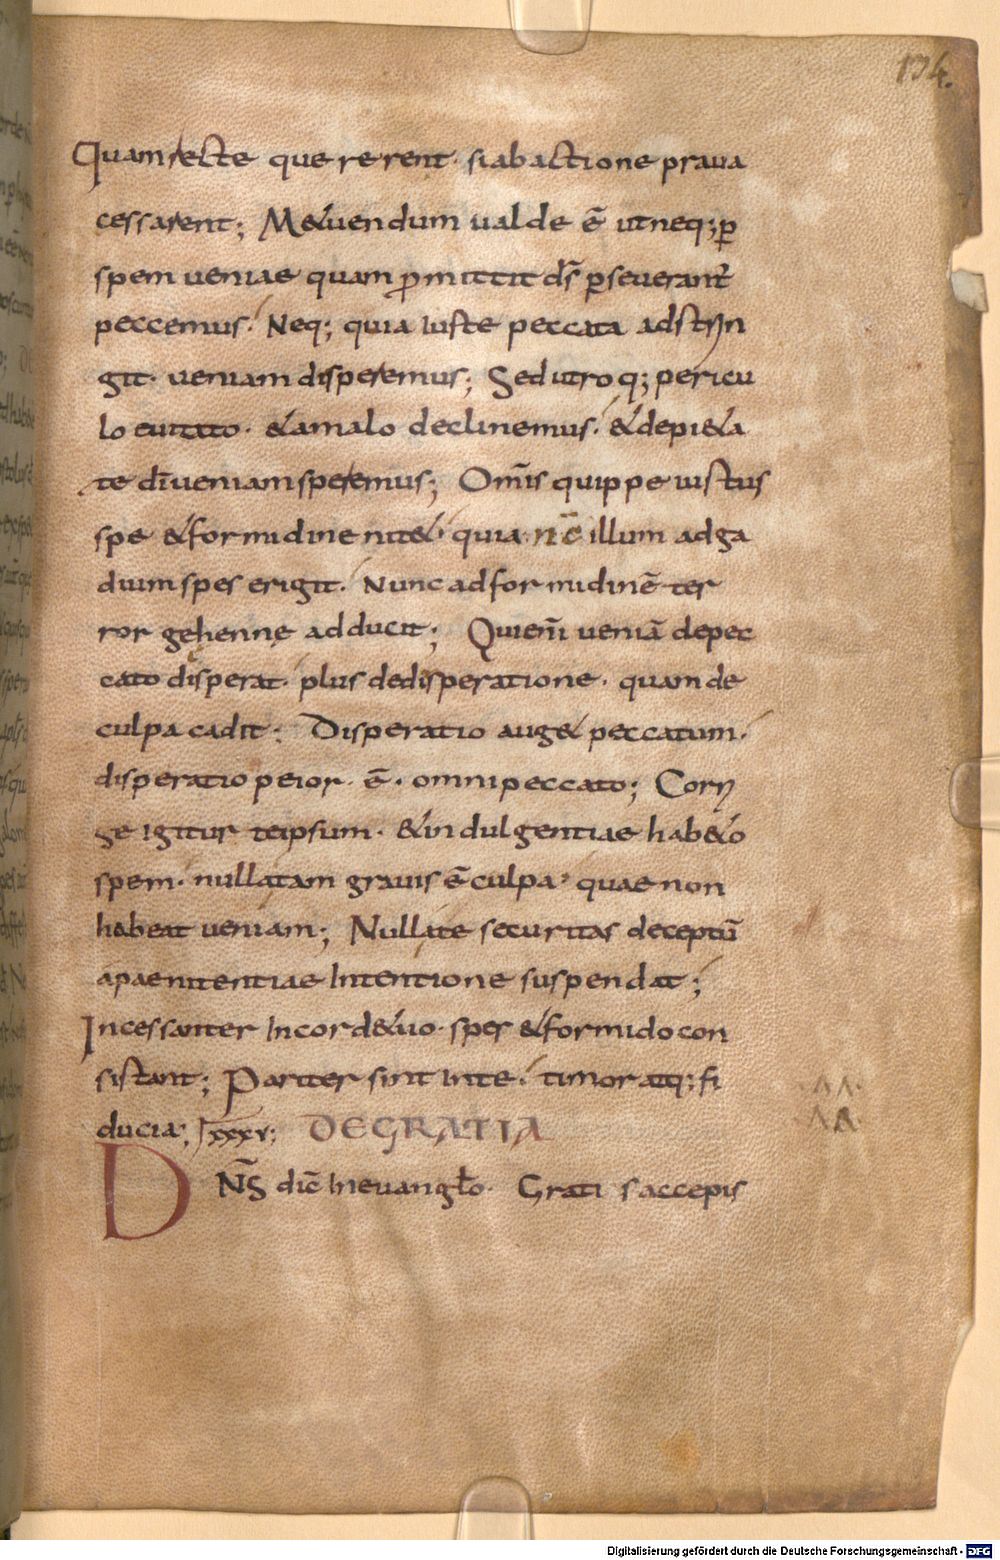 134.
Quam recte quererent· si ab actione praua
cessarent; Metuendum ualde ē ut neq; ꝑ
spem ueniae quam ꝓmittit d̄s ꝑseuerant̄
peccemus· Neq; quia iuste peccata adstrin
git· ueniam disperemus; Sed utroq; pericu
lo euitato· & a malo declinemus· & de pi&a
te dī ueniam speremus; Om̄is quippe iustus
spe & formidine nit&· quia n̄c illum ad ga
dium spes erigit· Nunc ad formidinē ter
ror gehennę adducit; Qui eni̅ ueniā de pec
cato disperat· plus de disperatione· quam de
culpa cadit; Disperatio aug& peccatum·
disperatio peior· ē· omni peccato; Corri
ge igitur teipsum· & indulgentiae hab&o
spem· nulla tam grauis ē culpa· quae non
habeat ueniam; Nulla te securitas deceptū
a paenitentiae Intentione suspendat;
Incessanter In corde tuo· spes & formido con
sistant; Pariter sint In te· timor atq; fi
ducia; lxxxv; DE GRATIA
DN̄S dic̄ In euanglo· Gratis accepis
Digitalisierung gefördert durch die Deutsche Forschungsgemeinschaft - DFG